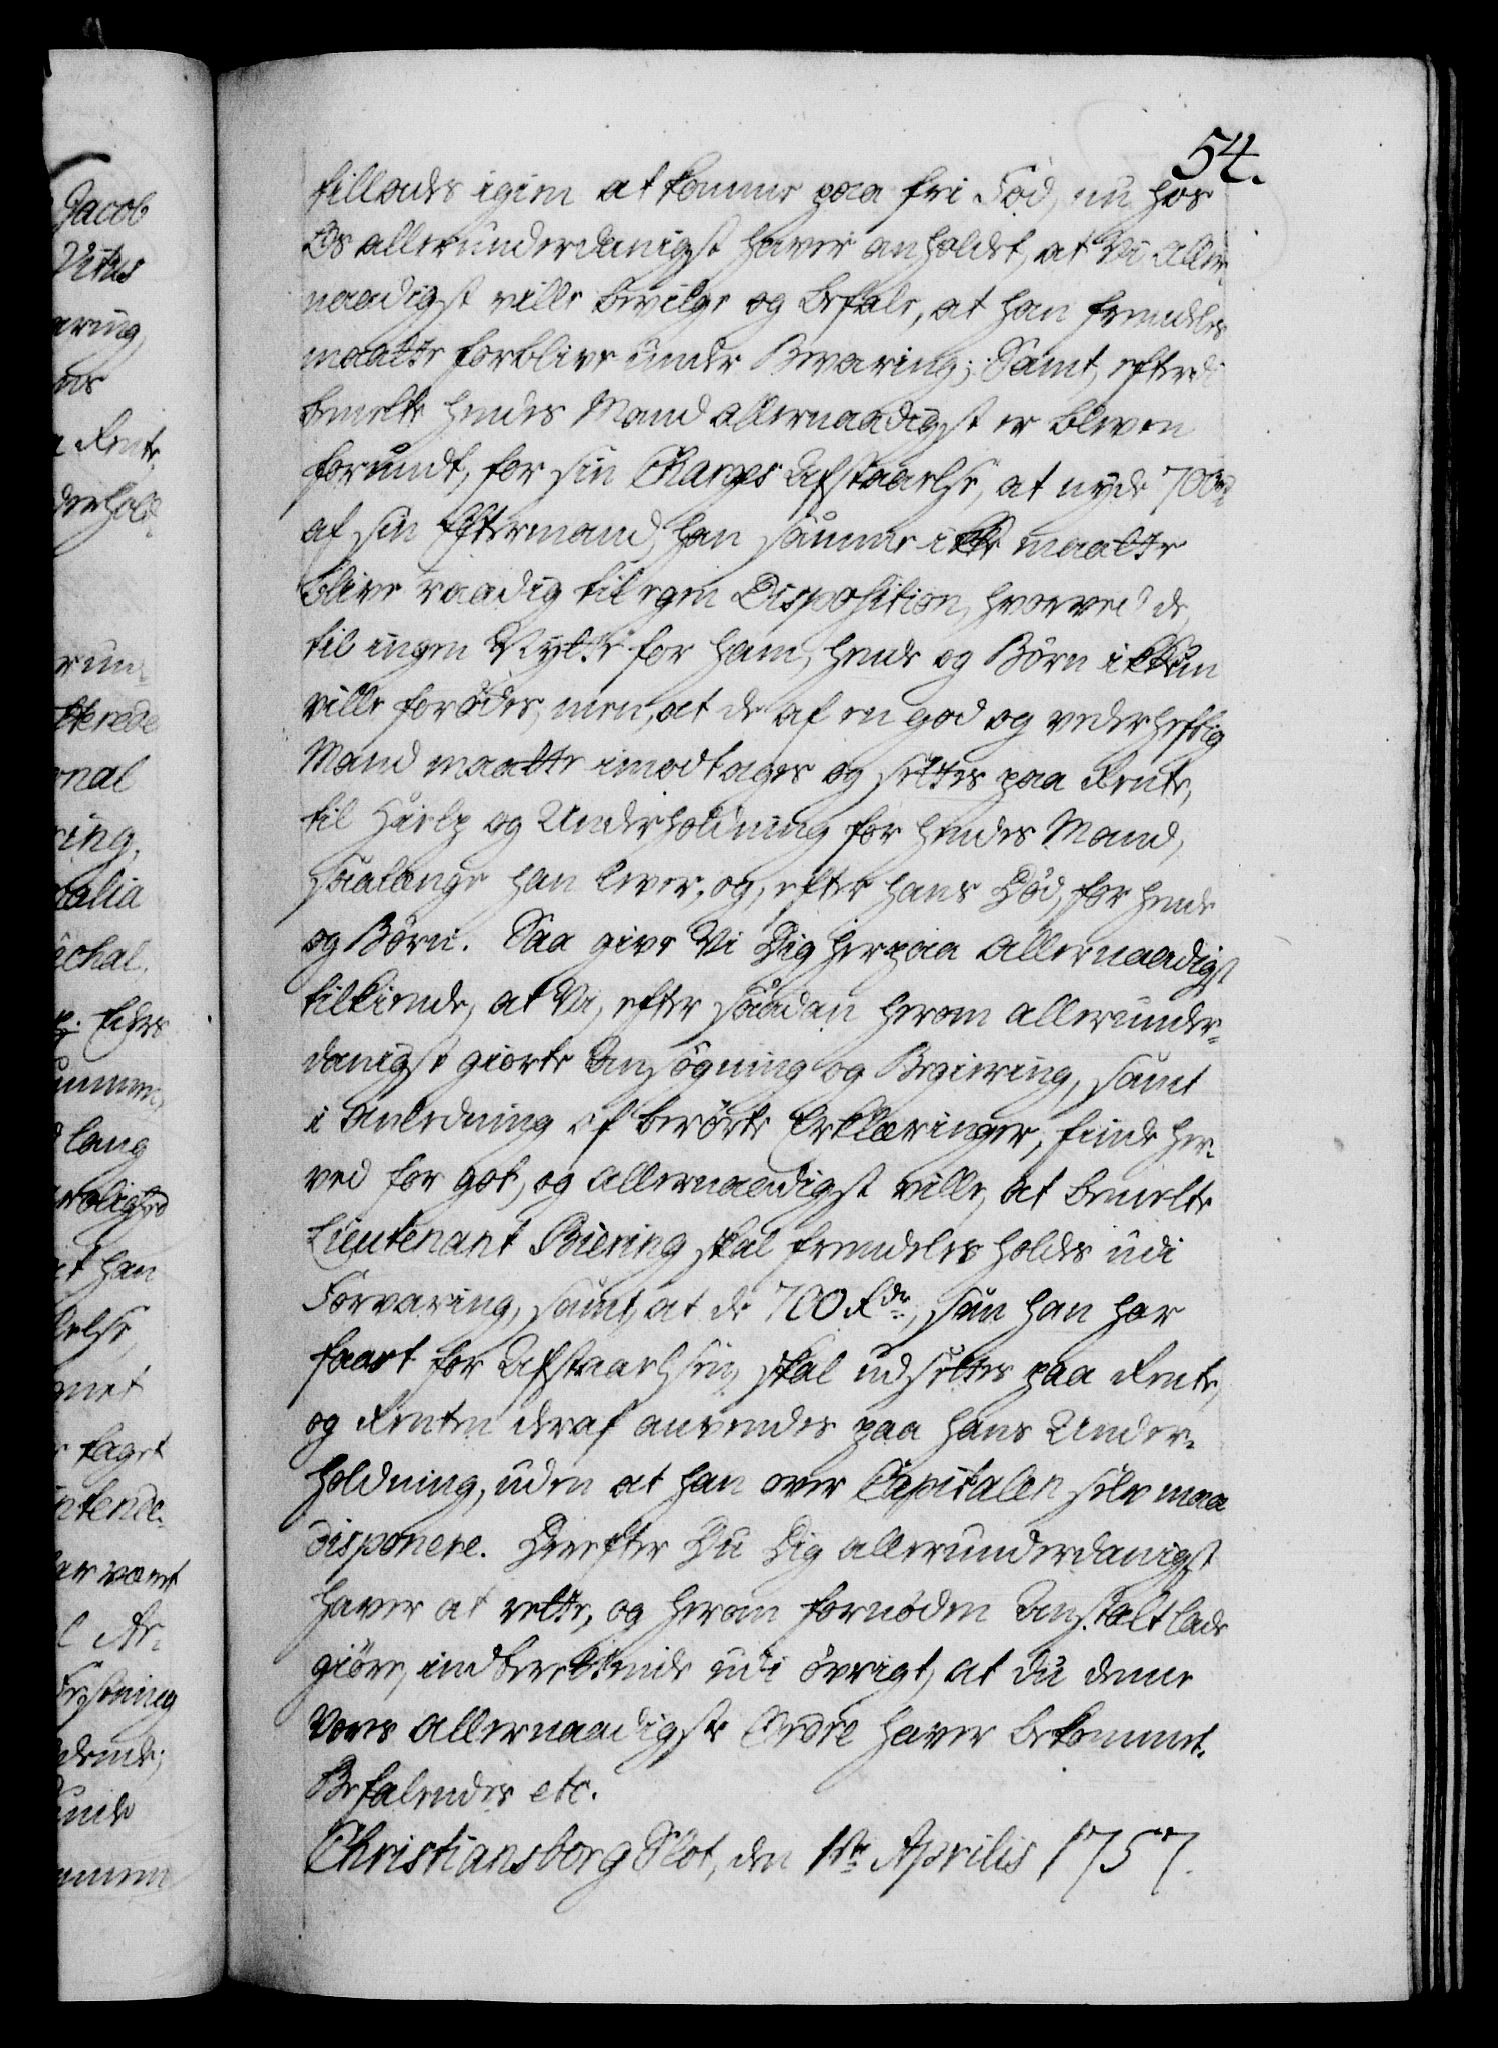 54.
tillades igien at komme paa fri Fod, nu hos
Os allerunderdanigst haver anholdet, at Vi Aller-
naadigst ville bevilge og befale, at han fremdeles
maatte forblive under Bevaring; Samt, efterdi
bemelte hendes Mand allernaadigst er bleven
forundt, for sin Charges Afstaaelse, at nyde 700 rd
af sin Eftermand, han samme ikke maatte
blive raadig til egen Disposition, hvorved de
til ingen Nytte for ham, hende og Børn ikkun
ville forødes, men, at de af en god og vederheftig
Mand maatte imodtages og settes paa Rente,
til Hielp og Underholdning for hendes Mand,
saalenge han lever, og, efter hans Død, for hende
og Børn. Saa give Vi Dig herpaa allernaadigst
tilkiende, at Vi, efter saadan herom allerunder-
danigst giorte Ansøgning og Begiering, samt
i Anledning af berørte Erklæringer, finde her-
ved for got, og allernaadigst ville, at bemelte
Lieutenant Biering skal fremdeles holdes udi
Forvaring, samt, at de 700 Rdr., som han har
faaet for Afstaaelsen, skal udsettes paa Rente,
og Renten deraf anvendes paa hans Under-
holdning, uden at han over Capitalen selv maa
disponere. Derefter Du Dig allerunderdanigst
haver at rette, og herom fornøden Anstalt lade
giøre, indberettende udi øvrigt, at du denne
Vores allernaadigste Ordre haver bekommet.
Befalendes etc.
Christiansborg Slot, den 1te Aprilis 1757.